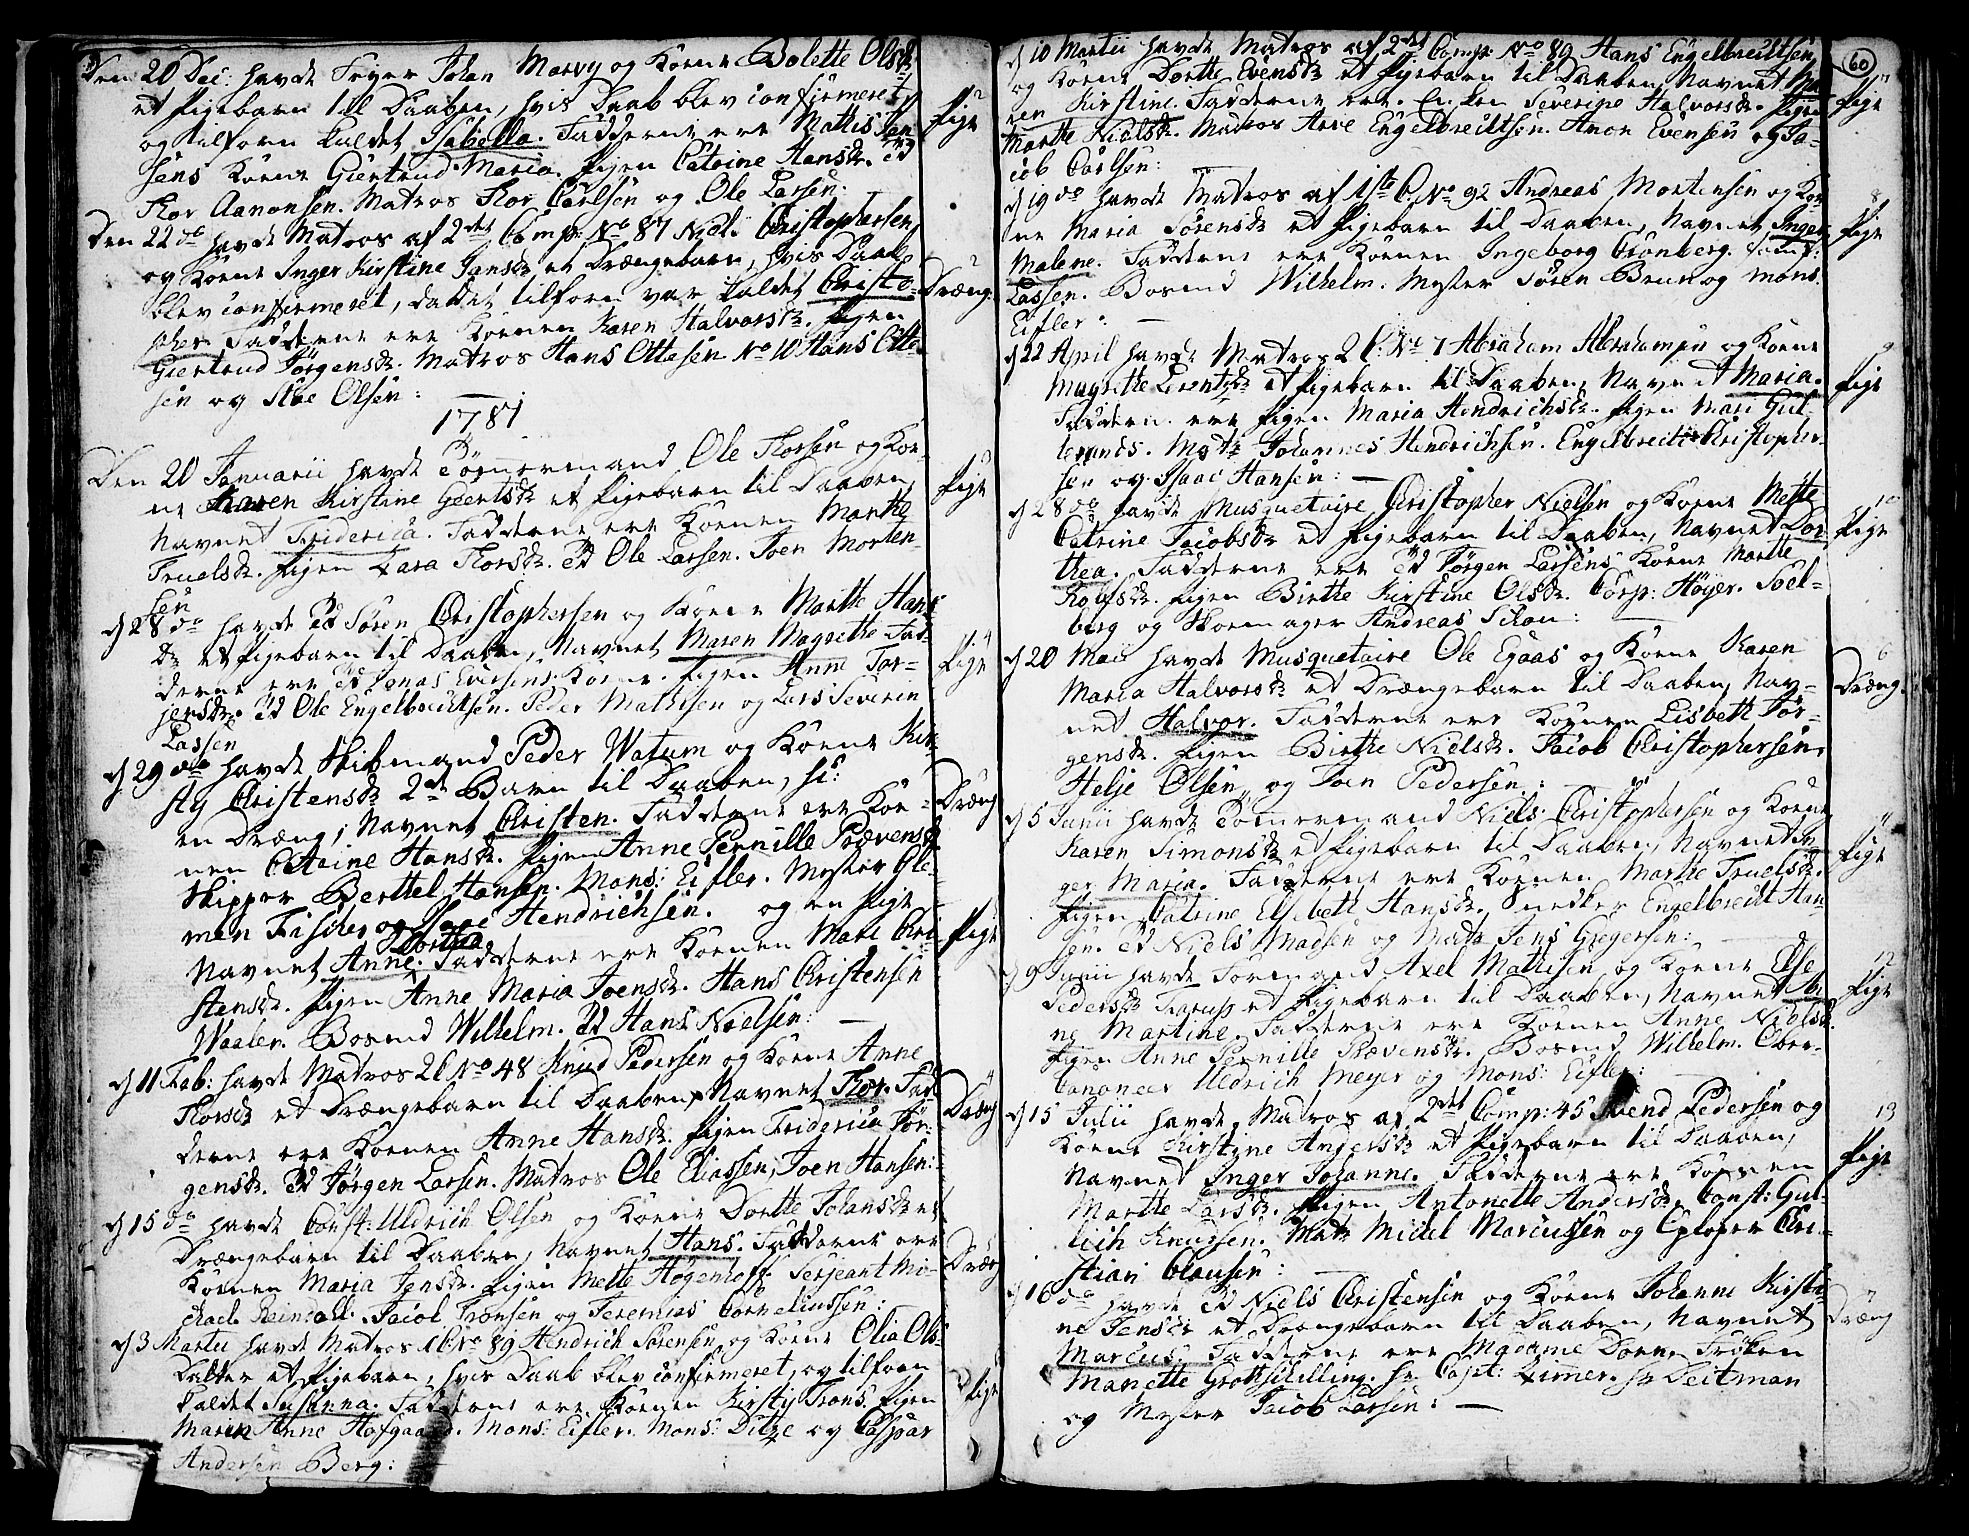 Den 20 Dec: havde Fryer Johan Marvy og Koene Bolette Olsdr
et Pigebarn till Daaben, hvis Daab blev confirmeret
og tilforn kaldet Isabella. Fadderne ere Mathis Jan-
sens Koene Giertrud Maria. Pigen Catrine Hansdr. Ed
Thor Aanonsen. Matros Thor Carlsen og Ole Larsen:
Pige
Den 22 do havde Matros af 2det Comp: No 87 Niels Christophersen
og Koene Inger Kirstine Jansdr et Drængebarn, hvis Daab
blev confirmeret, da det tilforn var kaldet Christo-
pher. Fadderne ere Koenen Karen Halvorsdr. Pigen
Giertrud Jørgensdr. Matros Hans Ottesen No 10 Hans Otte-
sen og Olsen:
Dræng
1781
Den 20 Januarii havde Tømermand Ole Thorsen og Koe-
ne Karen Kirstine Geertsdr et Pigebarn til Daaben,
Navnet Friderica. Fadderne ere Koenen Marthe
Truelsdr. Pigen Sara Thorsdr. Ed Ole Larsen. Joen Morten-
sen
1
Pige
d 28 do havde Ed Søren Christophersen og Koene Marthe Hans
dr et Pigebarn til Daaben, Navnet Maren Magrethe Fad-
derne ere Ed Jonas Eversens Koene. Pigen Anne Tor-
jersdr. Ed Ole Engelbrechtsen. Peder Mathisen og Lars Severin
Lassen
Pige
d 29 do havde Skibmand Peder Watum og Koene Kir-
sty Christensdr 2de Barn til Daaben, st:
en Dræng, Navnet Christen. Fadderne ere Koe-
nen Catrine Hansdr. Pigen Anne Pernille Prævensdr
Skipper Berttel Hansen. Mons: Eifler. Mester Cle-
men Fischer og Hendrichsen. og en Pige
Dorthea
Navnet Anne. Fadderne ere Koenen Mari Chri-
stensdr. Pigen Anne Maria Joensdr. Hans Christensen
Waaler. Bosmd Wilhelm. Ed Hans Noelsen:
Dræng
Pige
d 11 Feb: havde Matros 2C No 48 Knud Pedersen og Koene Anne
Thorsdr et Drængebarn til Daaben, Navnet Thor. Fad-
derne ere Koenen Anne Hansdr. Pigen Friderica Jør-
gensdr. Ed Jørgen Larsen. Matros Ole Eliassen, Joen Hansen:
4
Dræng
d 15 do havde Const: Uldrich Olsen og Koene Dorthe Johansdr et
Drængebarn til Daaben, Navnet Hans. Fadderne ere
Koenen Maria Jensdr. Pigen Mette Høgenhoff. Serjeant Mi-
chael Reinholt. Jacob Tronsen og Jeremias Corneliussen:
Dræng
d 3 Martii havde Matros 1C No 89 Hendrich Sørensen og Koene Olia Ols-
datter et Pigebarn, hvis Daab blev confirmeret, og tilforn
kaldet Susanna. Fadderne ere Koenen Kirsty Trons. Pigen
Maren Anne Hofgaard. Mons: Eifler. Mons: Ditze og Caspar
Andersen Berg:
Pige
60
d 10 Martii havde Matros af 2det Comp: No 89 Hans Engelbrechtsen
og Koene Dorthe Evensdr et Pigebarn til Daaben, Navnet Ma-
ren Kirstine. Fadderne ere Severine Halvorsdr. Pigen
Marthe Nielsdr. Matros Arve Engelbrechtsen. Anon Evensen og Ja-
cob Carlsen:
7
Pige
d 19 do havde Matros af 1ste C. No 92 Andreas Mortensen og Koe-
ne Maria Sørensdr et Pigebarn til Daaben, Navnet Inger
Malene. Fadderne ere Koenen Ingeborg Cronberg.
Lassen. Bosmd Wilhelm. Mester Søren Brun og Mons:
Eifler:
8
Pige
d 22 April havde Matros 2C: No 7 Abraham Abrahamsen og Koene
Magrethe Lerentsdr et Pigebarn til Daaben, Navnet Maria.
Fadderne ere Pigen Maria Hendrichsdr. Pigen Mari Gul-
brands. Matr Johannes Hendrichsen. Engelbrecht Christopher-
sen og Isaac Hansen:
9
Pige
d 28 do havde Musquetaire Christopher Nielsen og Koene Mette
Catrine Jacobsdr et Pigebarn til Daaben, Navnet Dor-
thea. Fadderne ere Ed Jørgen Larsens Koene Marthe
Rolfsdr. Pigen Birthe Kirstine Olsdr. Corp: Høyer. Soel-
berg og Skoemager Andreas Schou:
10
Pige
d 20 Maii havde Musquetaire Ole Egaas og Koene Karen
Maria Halvorsdr et Drængebarn til Daaben, Nav-
net Halvor. Fadderne ere Koenen Lisbeth Jør-
gensdr. Pigen Birthe Nielsdr. Jacob Christophersen.
Helje Olsen og Joen Pedersen:
6
Dræng
d 5 Junii havde Tømermand Niels Christophersen og Koene
Karen Simonsdr et Pigebarn til Daaben, Navnet In-
ger Maria. Fadderne ere Koenen Marthe Truelsdr.
Pigen Catrine Elsebeth Hansdr. Snedker Engelbrecht Han-
sen. Ed Niels Madsen og Matr Jens Gregersen:
11
Pige
d 9 Junii havde Formand Axel Mathisen og Koene Else
Pedersdr Trærup et Pigebarn til Daaben, Navnet An-
ne Martine. Fadderne ere Koenen Anne Nielsdr.
Pigen Anne Pernille Prævensdr. Bosmd Wilhelm. Ober-
Canoneer Uldrich Meyer og Mons: Eifler:
12
Pige
d 15 Julii havde Matros af 2det Comp: 45 Svend Pedersen og
Koene Kirstine Andersdr et Pigebarn til Daaben,
Navnet Inger Johanne. Fadderne ere Koenen
Marthe Larsdr. Pigen Antonette Andersdr. Const: Gul-
leich Knudsen. Matr Michel Marcussen og Chri-
stian Clausen:
13
Pige
d 16 do havde Ed Niels Christensen og Koene Johanne Kirsti-
ne Jensdr et Drængebarn til Daaben, Navnet
Marcus. Fadderne ere Madame Dorn. Frøken
Manette Grottschilling. Hr Capt: Zimer. Hr Leitman
og Mester Jacob Larsen:
7
Dræng